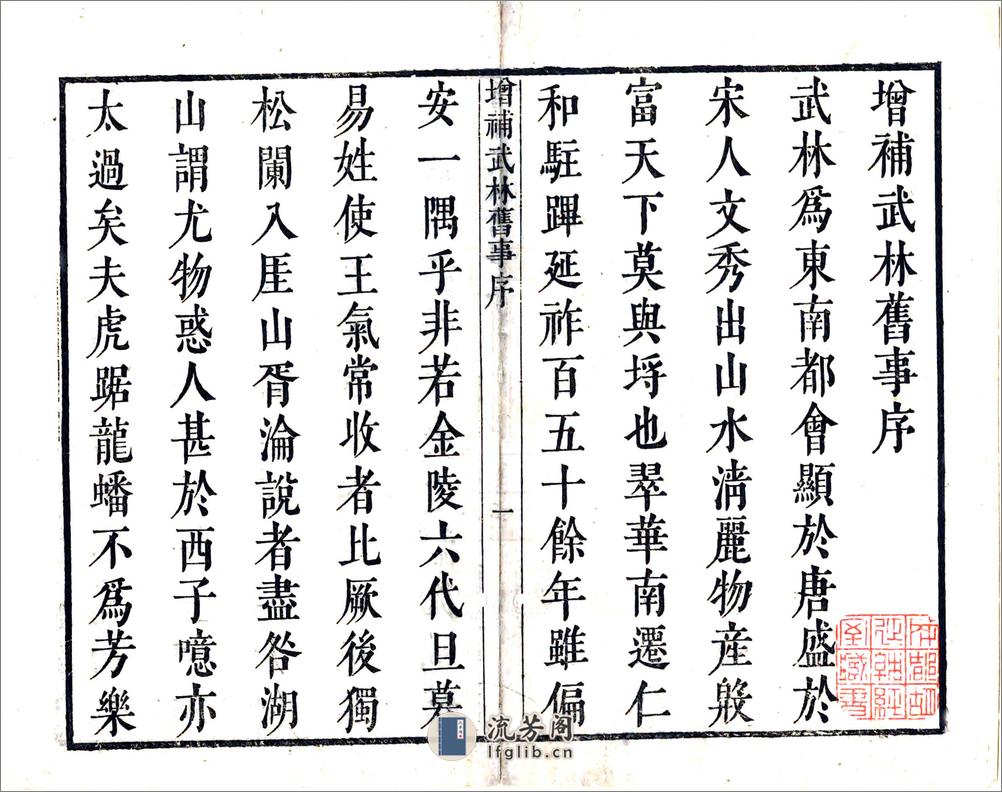 增補武林舊事序
武林爲東南都會顯於唐盛於
宋人文秀出山水淸麗物産殷
富天下莫與埒也翠華南遷仁
和駐蹕延祚百五十餘年雖偏
增補武林舊事序
一
安一隅乎非若金陵六代旦莫
易姓使王氣常收者比厥後獨
松闌入厓山胥淪說者盡咎湖
山謂尤物惑人甚於西子噫亦
太過矣夫虎踞龍蟠不爲芳樂
流芳阁
lfglib.cn